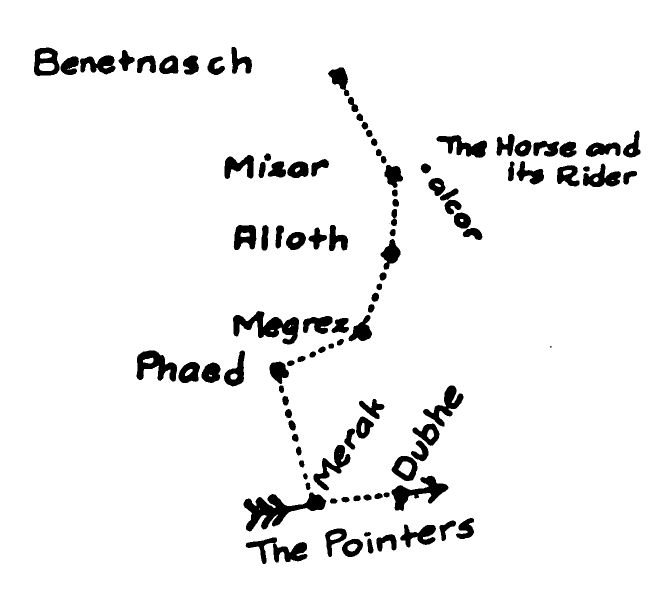 Benetnasch
The Horse and
its Rider
Mizar
alcor
Alioth
Megrez
Phaed
Merak
Dubhe
The Pointers